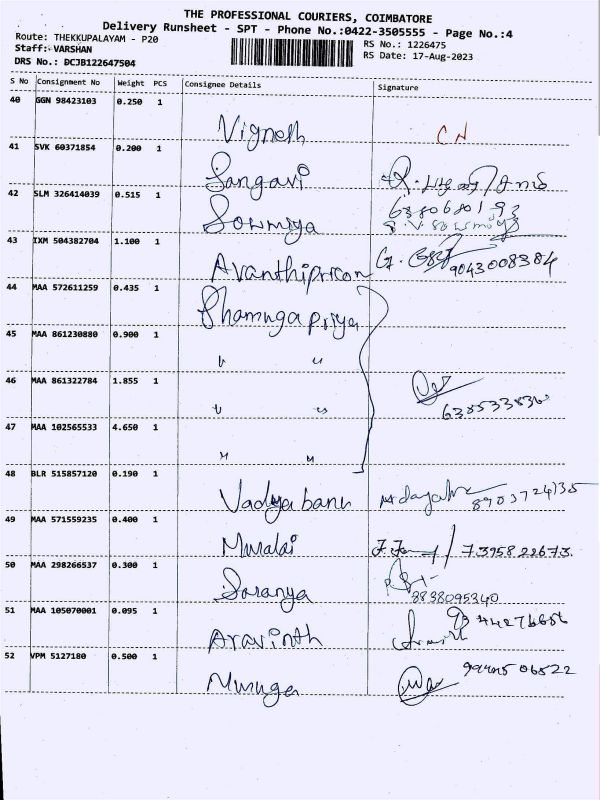 THE PROFESSIONAL COURIERS, COIMBATORE
Delivery Runsheet - SPT - Phone No.:0422-3505555 - Page No.:4
Route: THEKKUPALAYAM - P20
RS No.: 1226475
Staff: VARSHAN
RS Date: 17-Aug-2023
DRS No.: DCJB122647504
S No Consignment No Weight PCS Consignee Details Signature
40 GGN 98423103 0.250 1
Vignesh CN
41 SVK 60371854 0.200 1
Sangavi
42 SLM 326414039 0.515 1
Sowmiya
43 IXM 504382704 1.100 1
9043008384
44 MAA 572611259 0.435 1
Shamugapriya
45 MAA 861230880 0.900 1
" "
46 MAA 861322784 1.855 1
" "
47 MAA 102565533 4.650 1
" "
48 BLR 515857120 0.190 1
Vadya banu 8903724135
49 MAA 571559235 0.400 1
Muralai 7395822673
50 MAA 298266537 0.300 1
Saranya 8838095340
51 MAA 105070001 0.095 1
Aravinth
52 VPM 5127180 0.500 1
Muruga